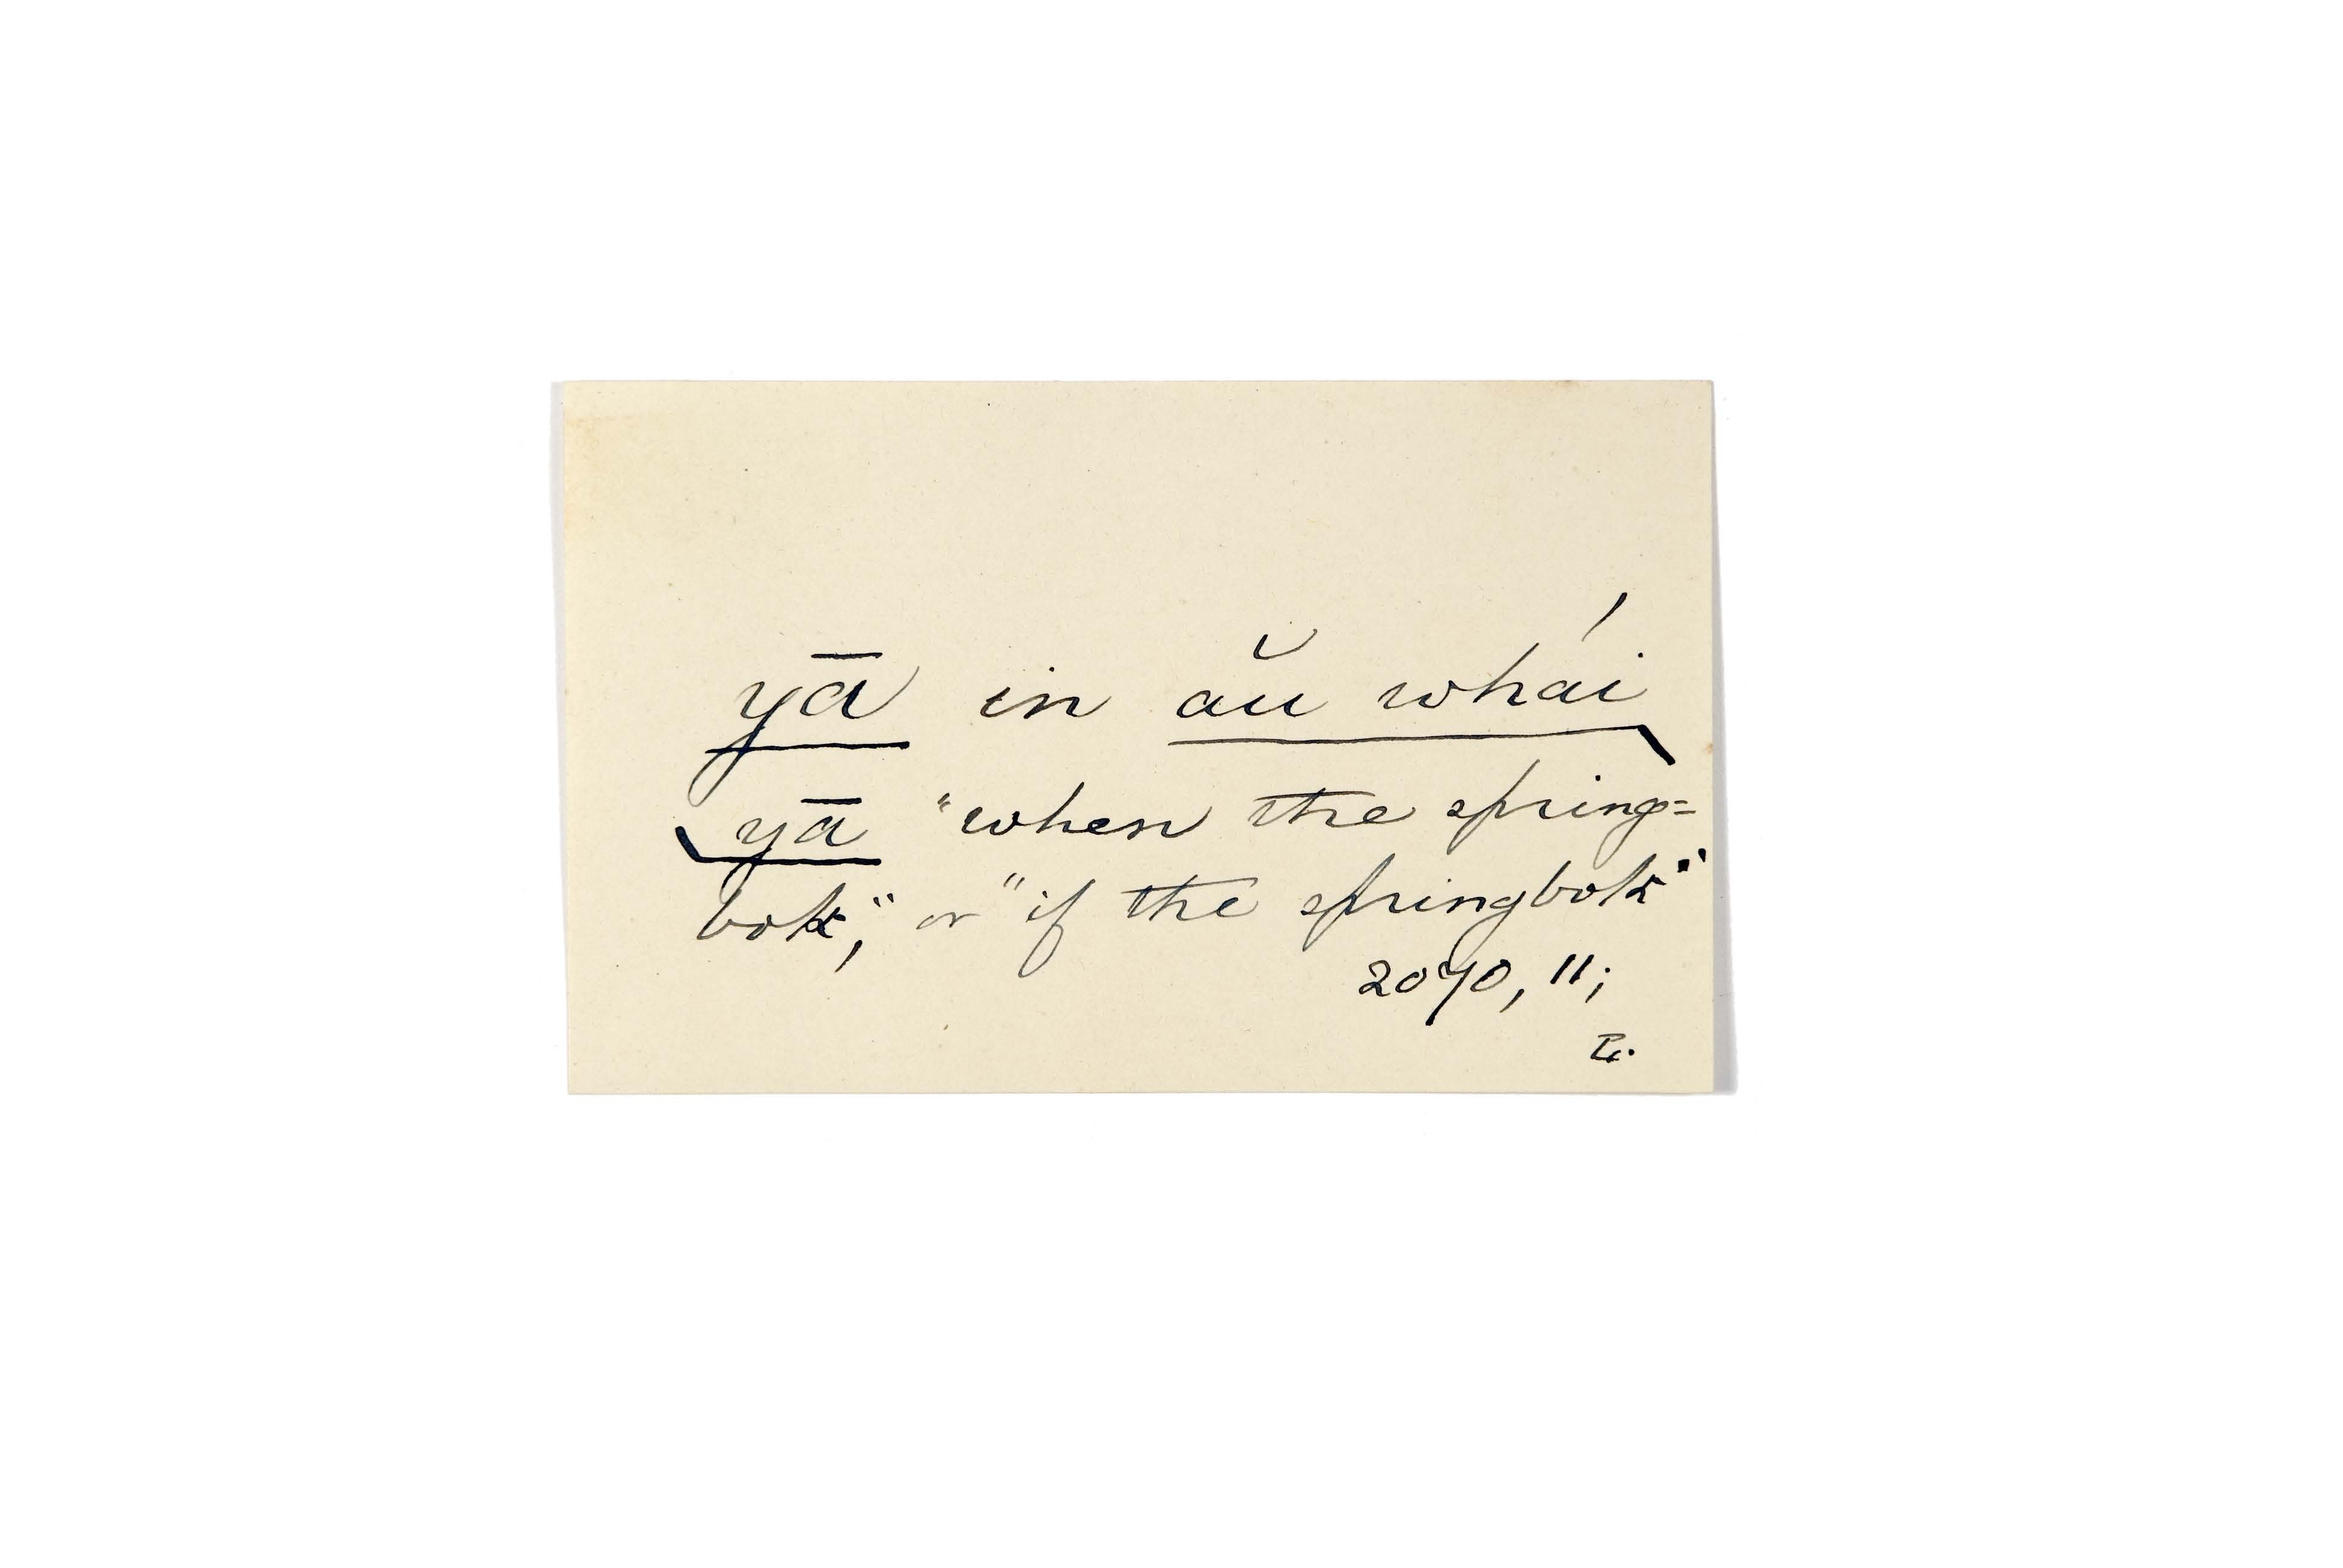 yā in aŭ whái
yā "when the spring=
bok," or "if the springbok"
2070, 11;